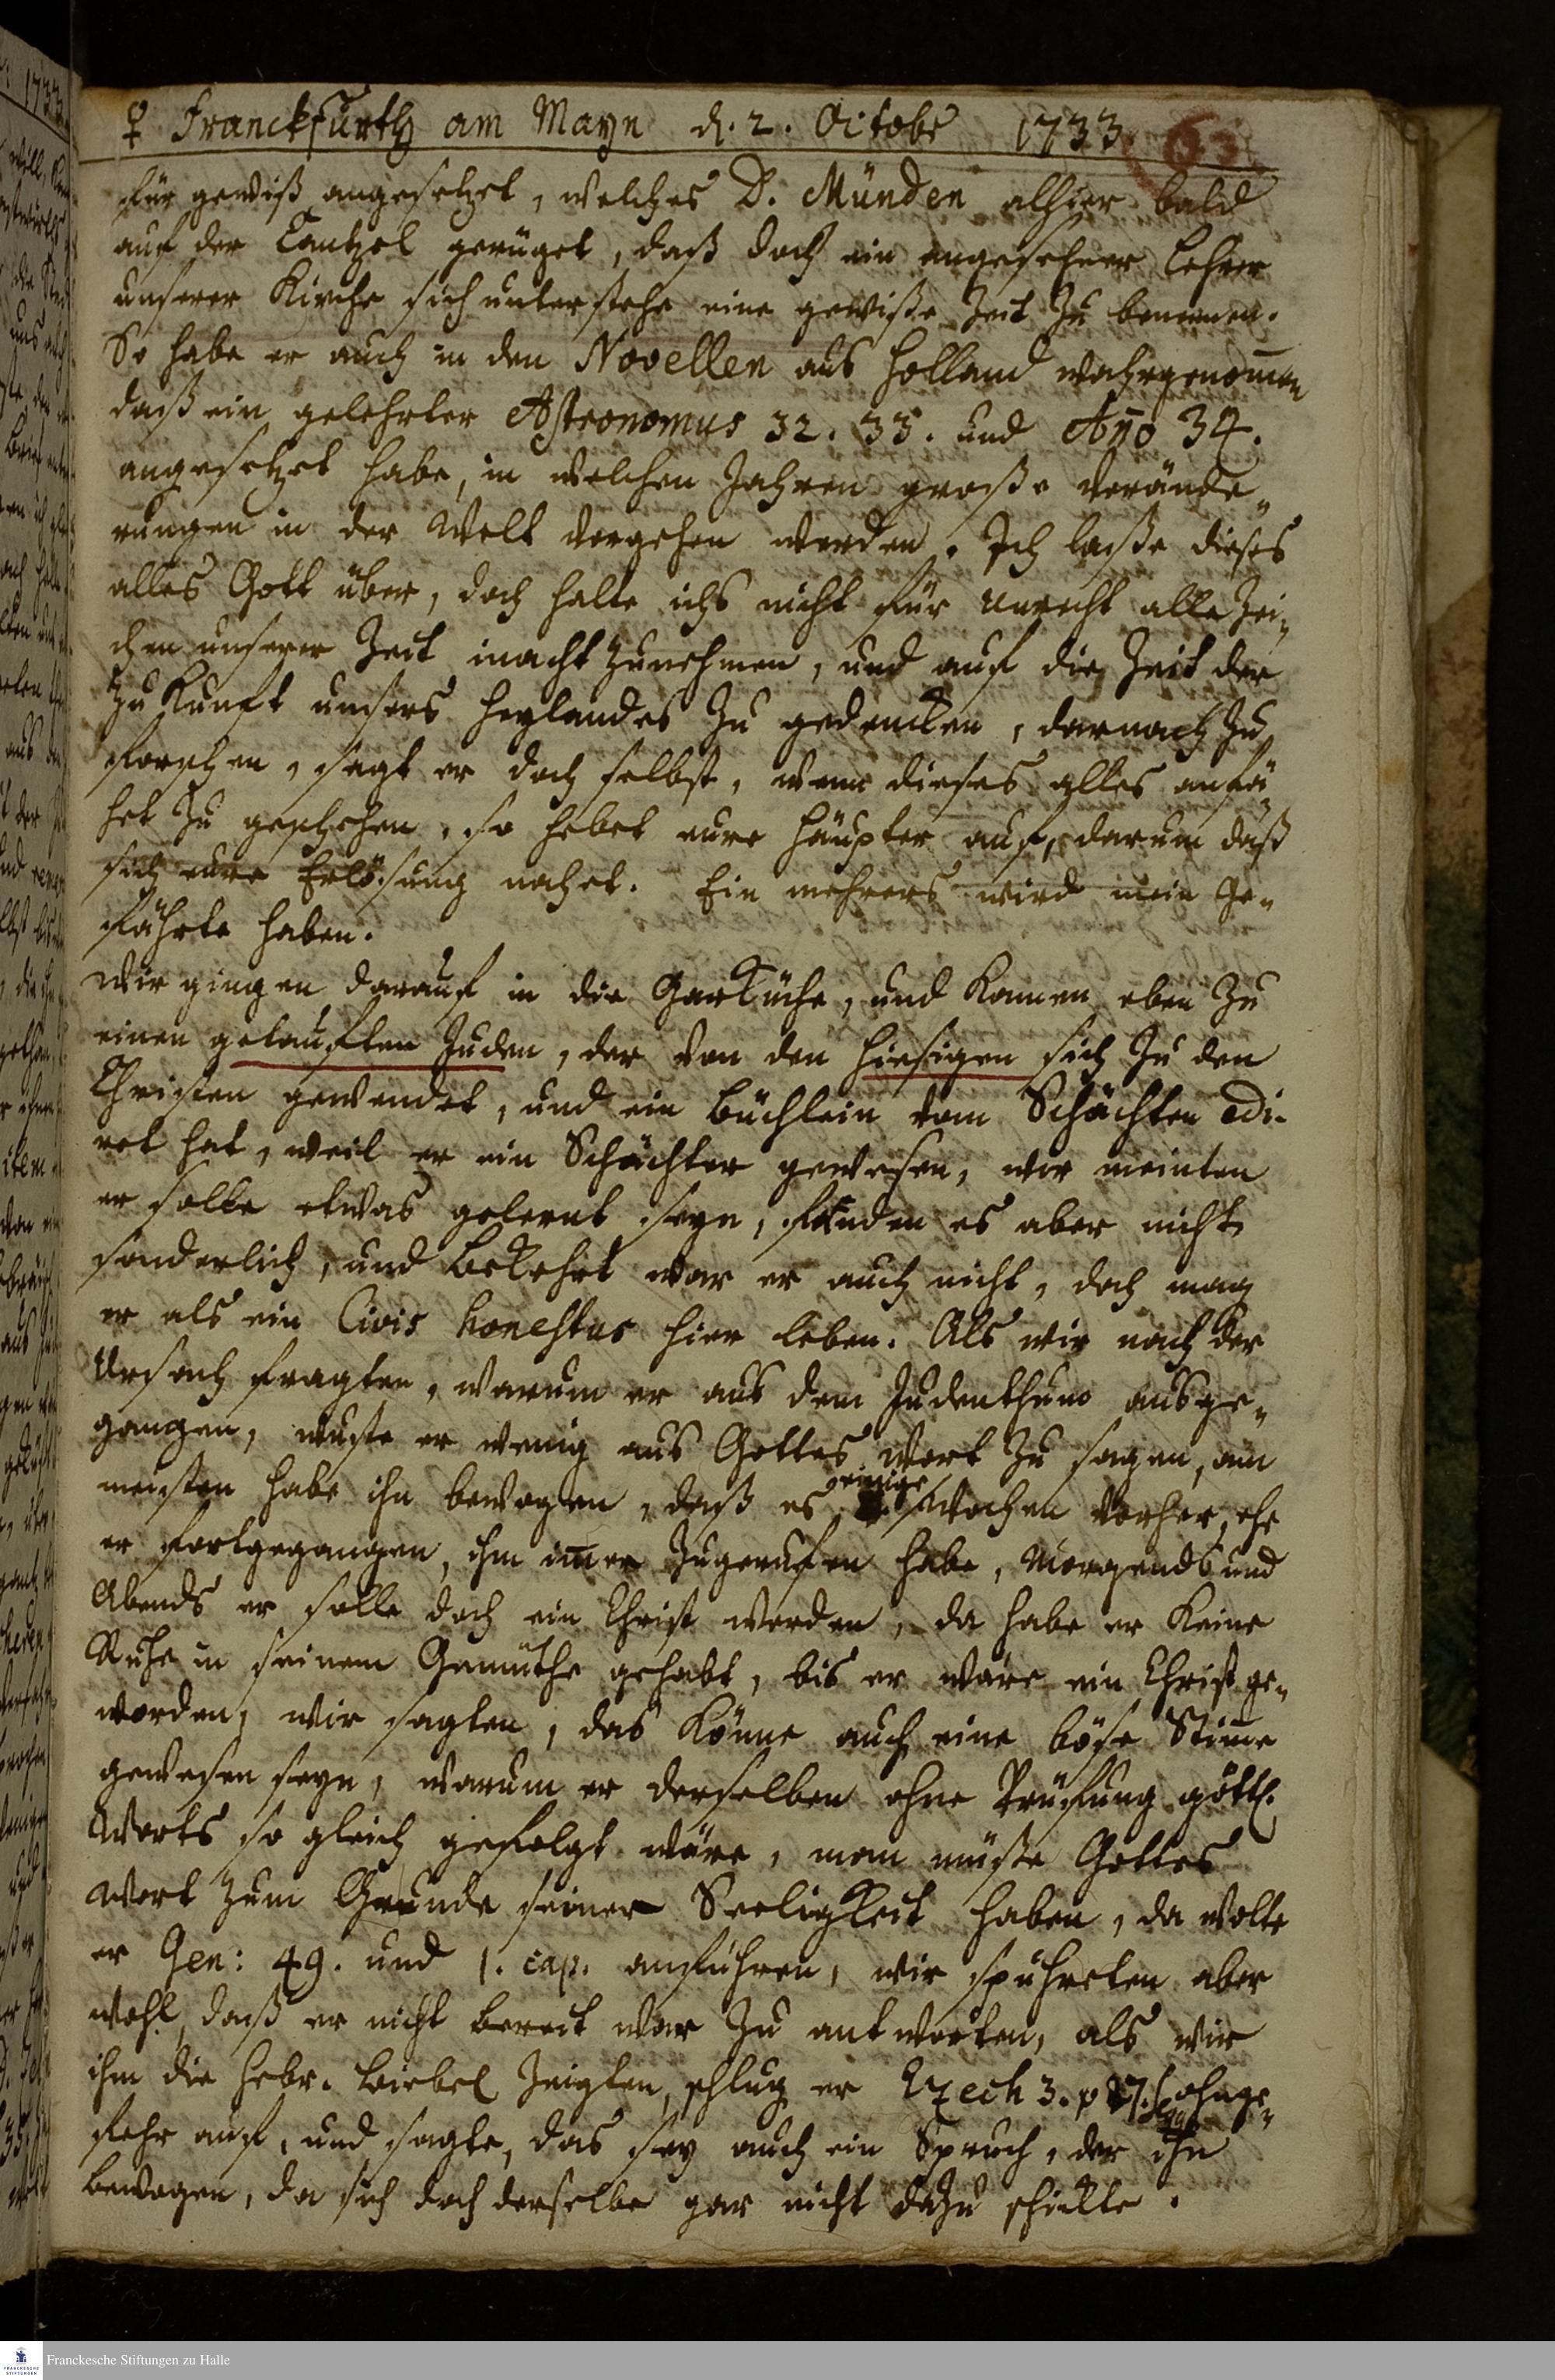 ♀ Franckfurth am Mayn d. 2. Octobr 1733. 63
für gewiß angesetzet, welches D. Münden alhier bald
auf der Cantzel gerüget, daß doch ein angesehener Lehrer
unserer Kirche sich unterstehe eine gewiße Zeit zu benennen.
So habe er auch in den Novellen aus Holland wahrgenom̄en
daß ein gelehrter Astronomus 32. 33. und An̄o 34.
angesetzet habe, in welchen Jahren große Verände-
rungen in der Welt vorgehen werden. Ich laße dieses
alles Gott über, doch halte ichs nicht für unrecht alle Zei-
chen unserer Zeit inacht zunehmen, und auf die Zeit der
Zukunft unsers Heylandes zu gedencken, darnach zu
forschen, sagt er doch selbst, wenn dieses alles anfä-
het zu geschehen, so hebet eure Häupter auf, darum daß
sich eure Erlösung nahet. Ein mehrers wird mein Ge-
fährte haben.
Wir gingen darauf in die Garküche, und kamen eben zu
einen getauften Juden, der von den hiesigen sich zu den
Christen gewendet, und ein Büchlein vom Schächten edi-
ret hat, weil er ein Schächter gewesen, wir meinten
er solte etwas gelernt seyn, fanden es aber nicht
sonderlich, und bekehrt war er auch nicht, doch mag
er als ein Civis honestus hier leben. Als wir nach der
Ursach fragten, warum er aus dem Judenthum ausge-
gangen, wuste er wenig aus Gottes Wort zu sagen, am
meisten habe ihn bewogen, daß es einige Wochen vorher, ehe
er fortgegangen, ihm im̄er zugeruffen habe, Morgends und
Abends er solle doch ein Christ werden, da habe er keine
Ruhe in seinem Gemüthe gehabt, bis er wäre ein Christ ge-
worden, wir sagten, das könne auch eine böse Stim̄e
gewesen seyn, warum er derselben ohne Prüfung göttl.
Worts so gleich gefolgt wäre, man müste Gottes
Wort zum Grunde seiner Seeligkeit haben, da wolte
er Gen: 49. und 1. cap. anführen, wir spühreten aber
wohl, daß er nicht bereit war zu antworten, als wir
ihm die Hebr. Biebel zeigten, schlug er Ezech 3. p 27. ohnge-
fehr auf, und sagte, das sey auch ein Spruch, der ihn
bewogen, da sich doch derselbe gar nicht dazu schickte.
Franckesche Stiftungen zu Halle